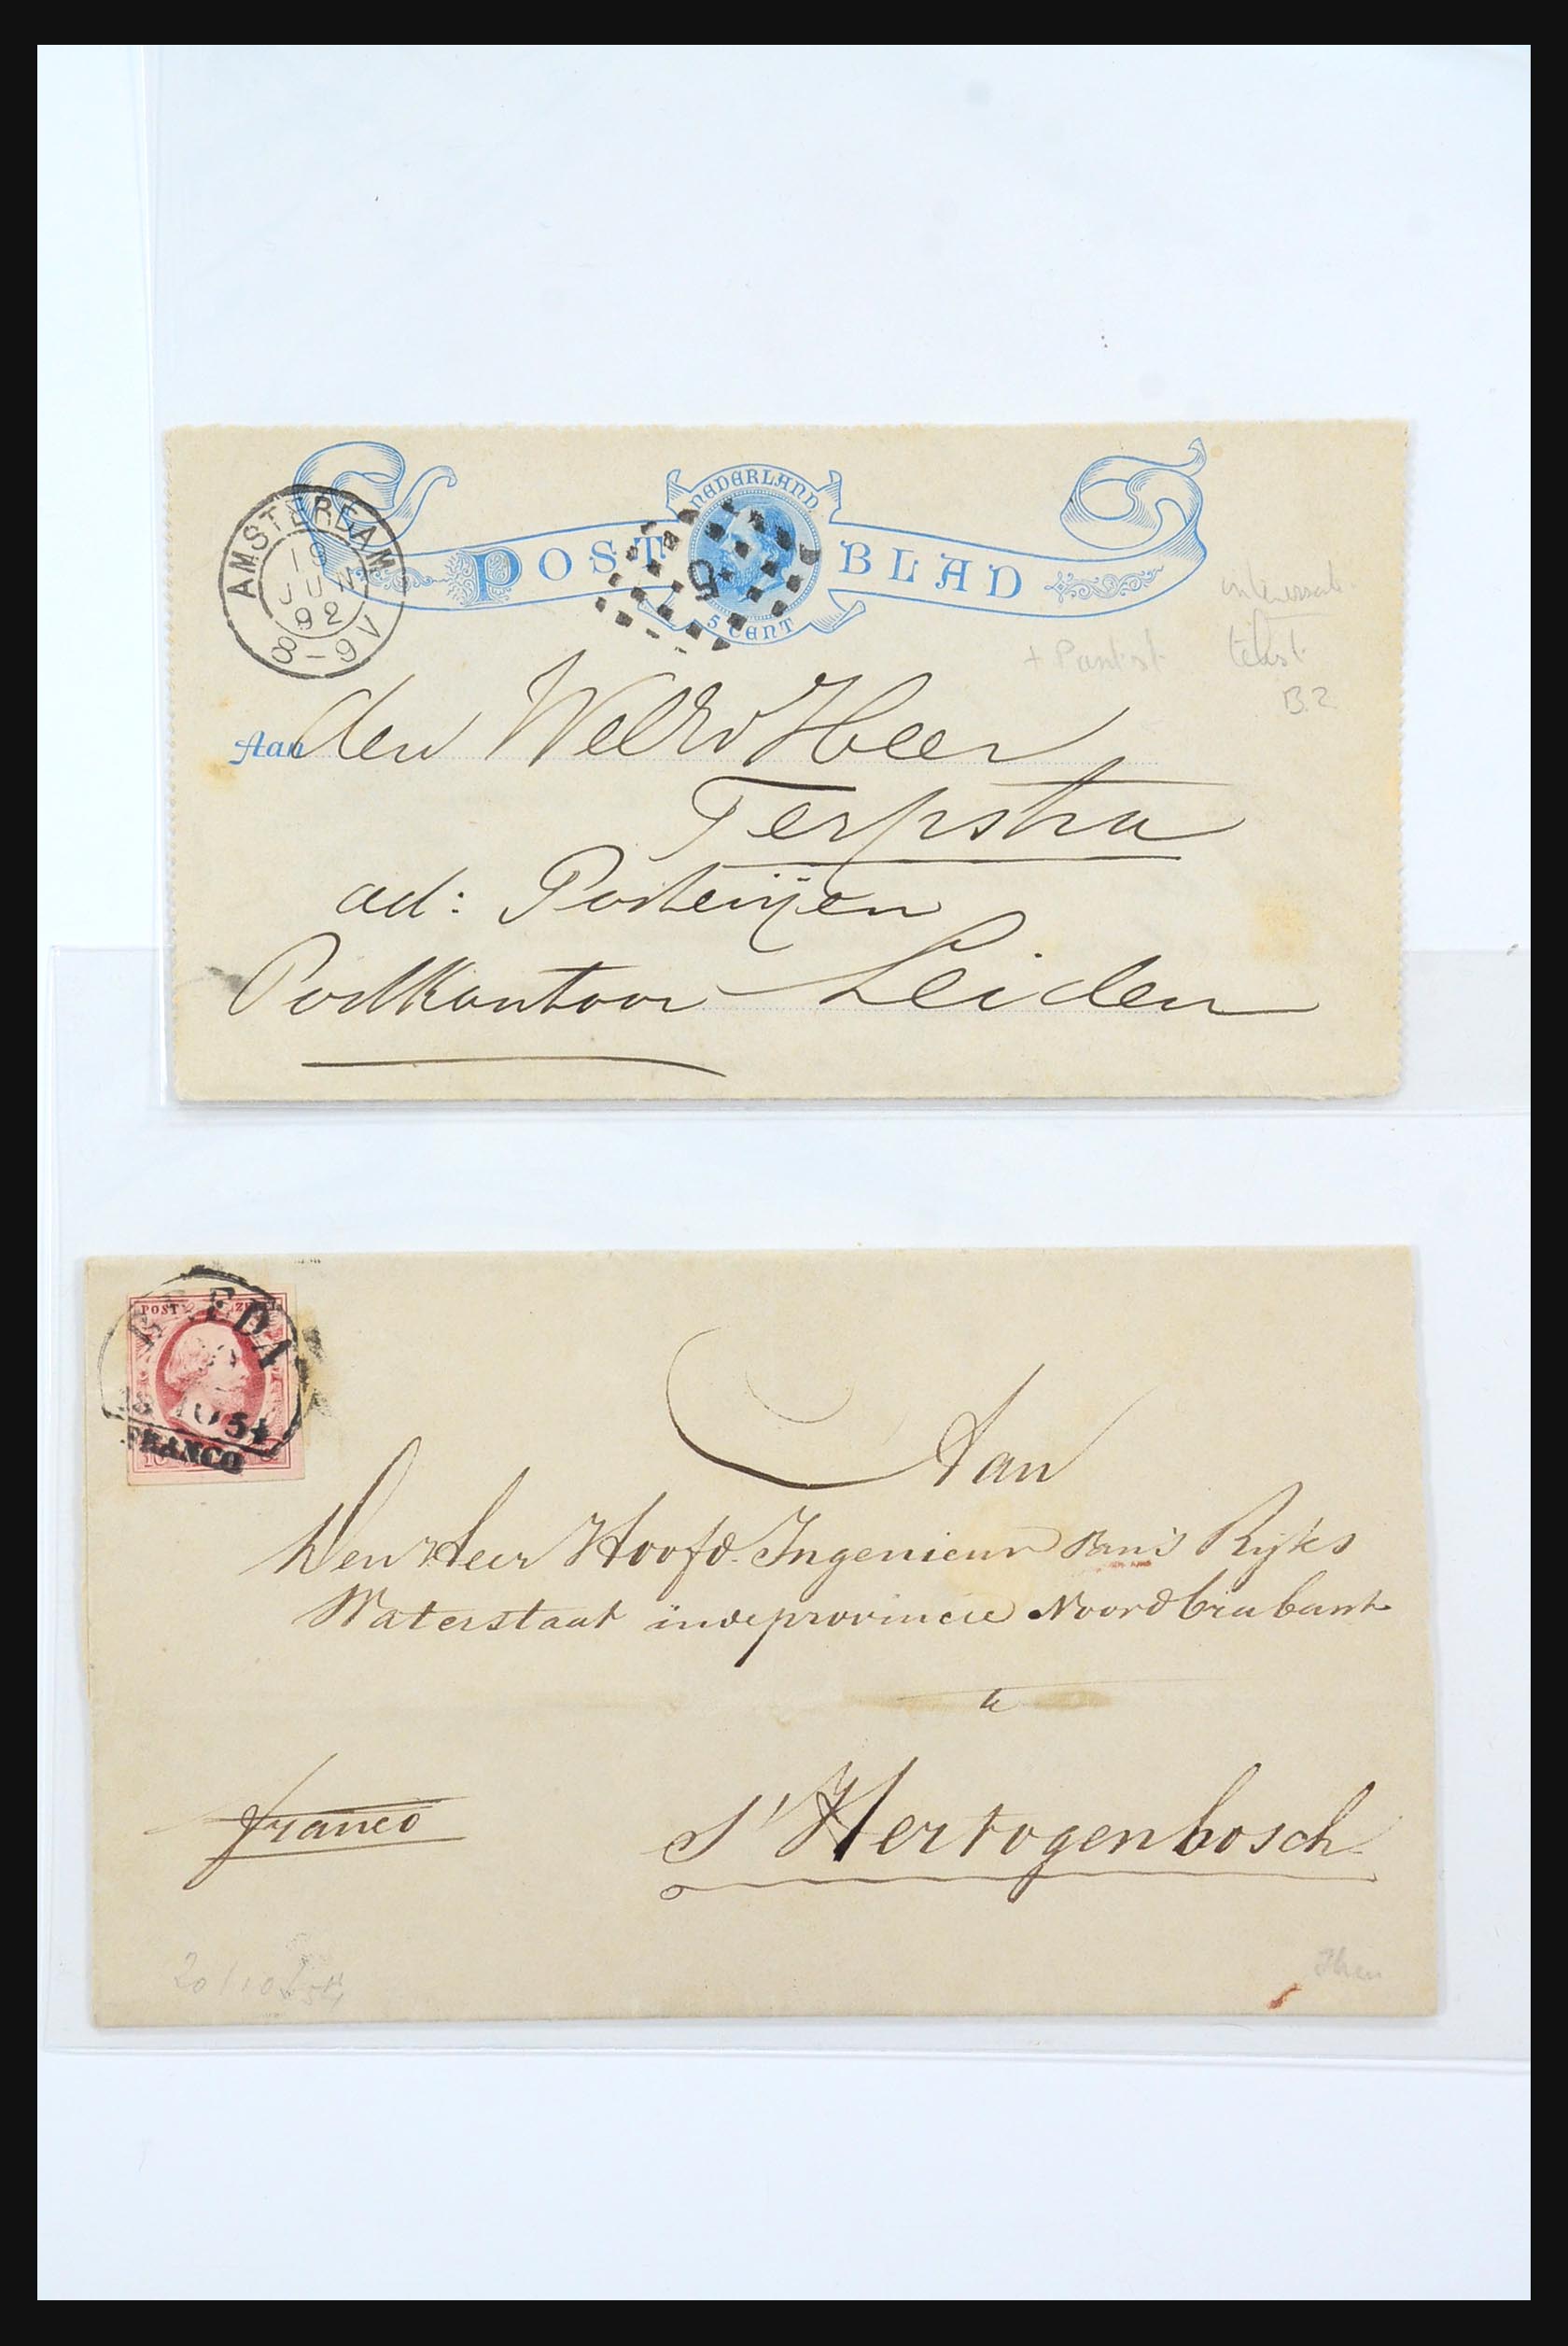 NEDERLAND
POST BLAD
5 CENT
5
AMSTERDAM
19
JUN
92
8-9V
+ Puntst
tekst
B.2
Aan den WelEd Heer
Terpstra
ad: Posterijen
Postkantoor Leiden
POST
BREDA
10 54
FRANCO
Aan
Den Heer Hoofd. Ingenieur van's Rijks
Waterstaat in de provincie Noordbrabant
te
franco
s'Hertogenbosch
20/10 54